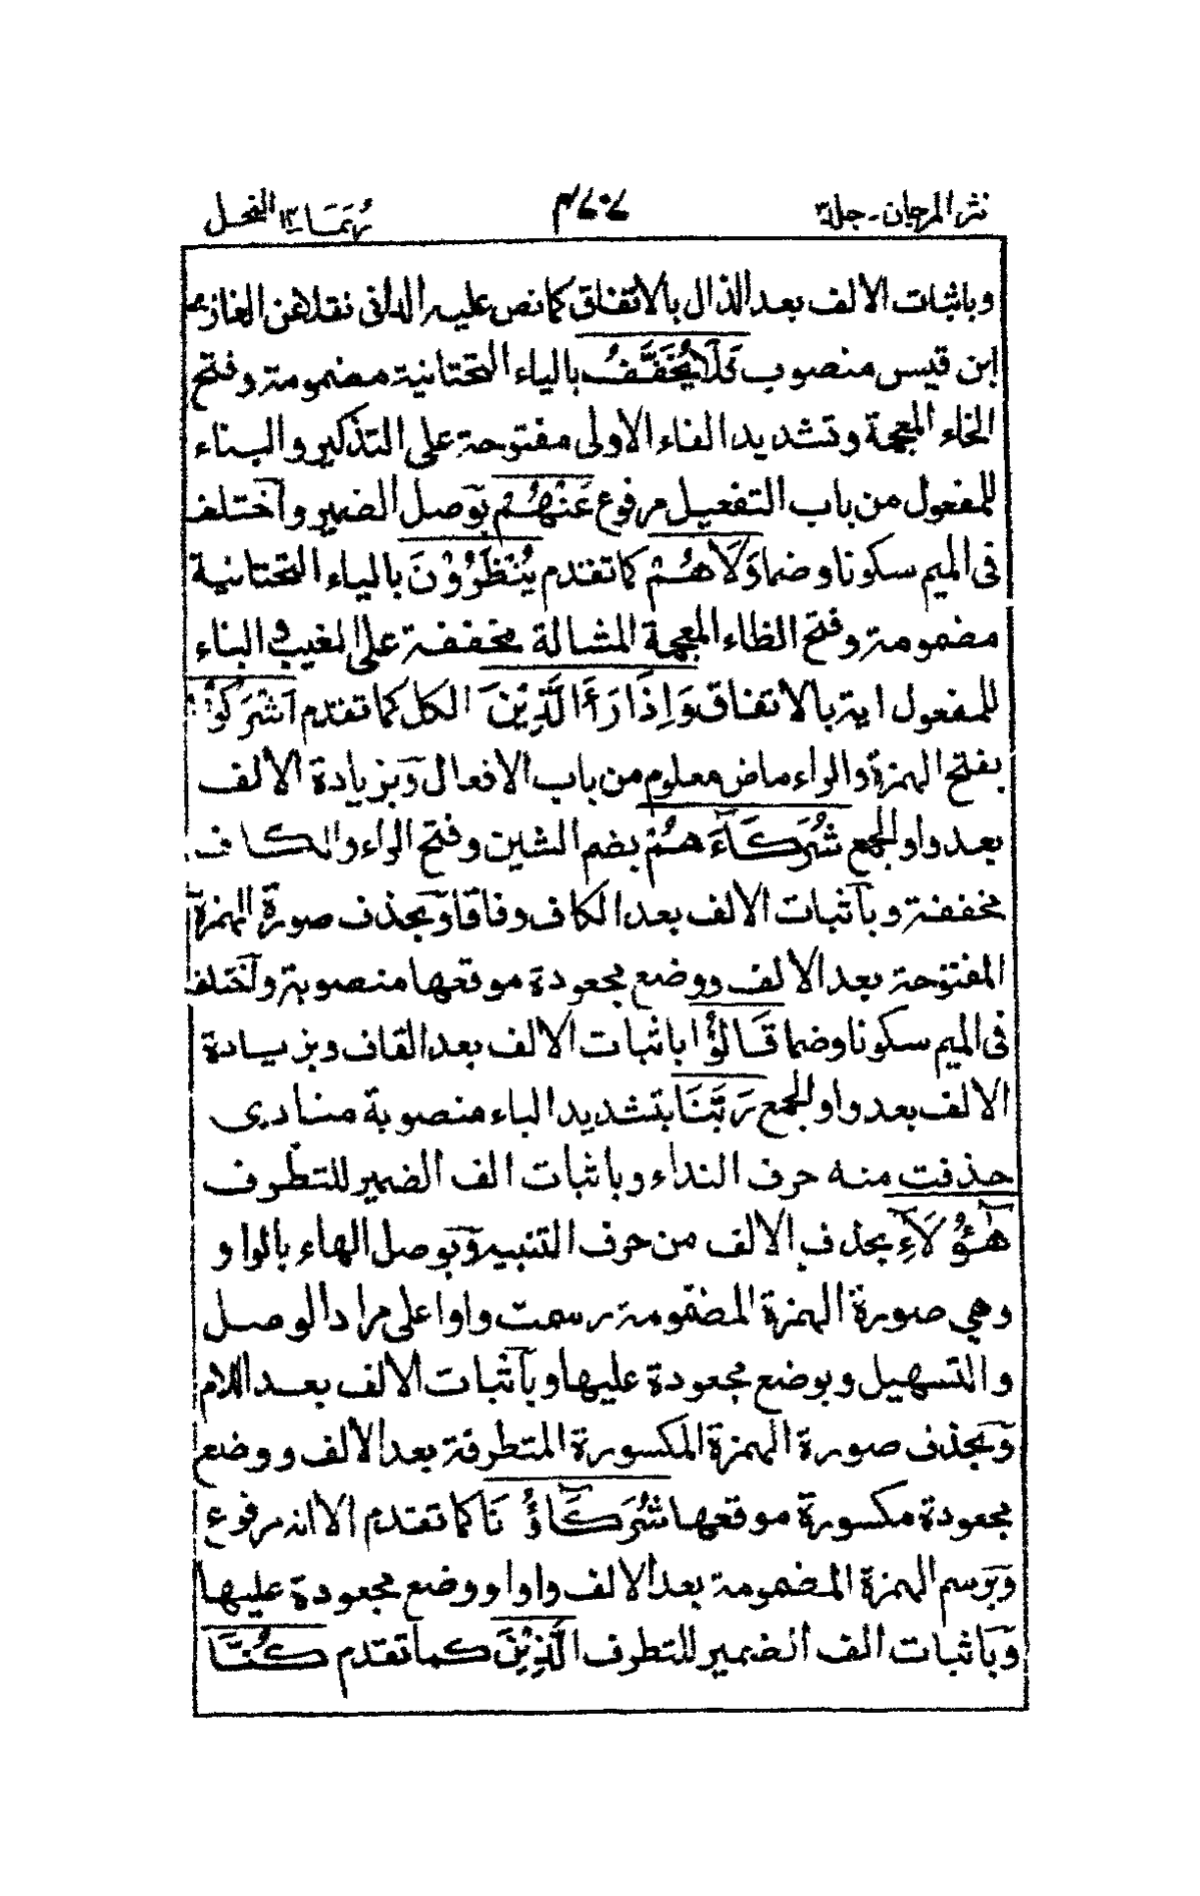 نثر المرجان - جلد ٣ ٧٠٧ ربما ١٣ النحل
وباثبات الالف بعد الذال بالاتفاق كما نص عليه الدانى نقلا عن الغاز
ابن قيس منصوب فَلَا يُخَفَّفُ بالياء التحتانية مضمومة وفتح
الخاء المعجمة وتشديد الفاء الاولى مفتوحة على التذكير والبناء
للمفعول من باب التفعيل مرفوع عَنْهُمْ بوصل الضمير واختلف
فى الميم سكونا وضما وَلَا هُمْ كما تقدم يُنْظَرُوْنَ بالياء التحتانية
مضمومة وفتح الظاء المعجمة المشالة مخففة على الغيب والبناء
للمفعول اية بالاتفاق وَاِذَا رَأَ الَّذِيْنَ الكل كما تقدم اَشْرَكُوْا
بفتح الهمزة والراء ماض معلوم من باب الافعال وبزيادة الالف
بعد واو الجمع شُرَكَآءَهُمْ بضم الشين وفتح الراء والكاف
مخففة وباثبات الالف بعد الكاف وفاقا وبحذف صورة الهمزة
المفتوحة بعد الالف ووضع مجعودة موقعها منصوبة واختلف
فى الميم سكونا وضما قَالُوْا باثبات الالف بعد القاف وبزيادة
الالف بعد واو الجمع رَبَّنَا بتشديد الباء منصوبة منادى
حذفت منه حرف النداء وباثبات الف الضمير للتطرف
هٰٓؤُلَآءِ بحذف الالف من حرف التنبيه وبوصل الهاء بالواو
وهي صورة الهمزة المضمومة رسمت واوا على مراد الوصل
والتسهيل وبوضع مجعودة عليها وباثبات الالف بعد اللام
وبحذف صورة الهمزة المكسورة المتطرفة بعد الالف ووضع
مجعودة مكسورة موقعها شُرَكَآؤُنَا كما تقدم الا انه مرفوع
وبرسم الهمزة المضمومة بعد الالف واوا ووضع مجعودة عليها
وباثبات الف الضمير للتطرف الَّذِيْنَ كما تقدم كُنَّا